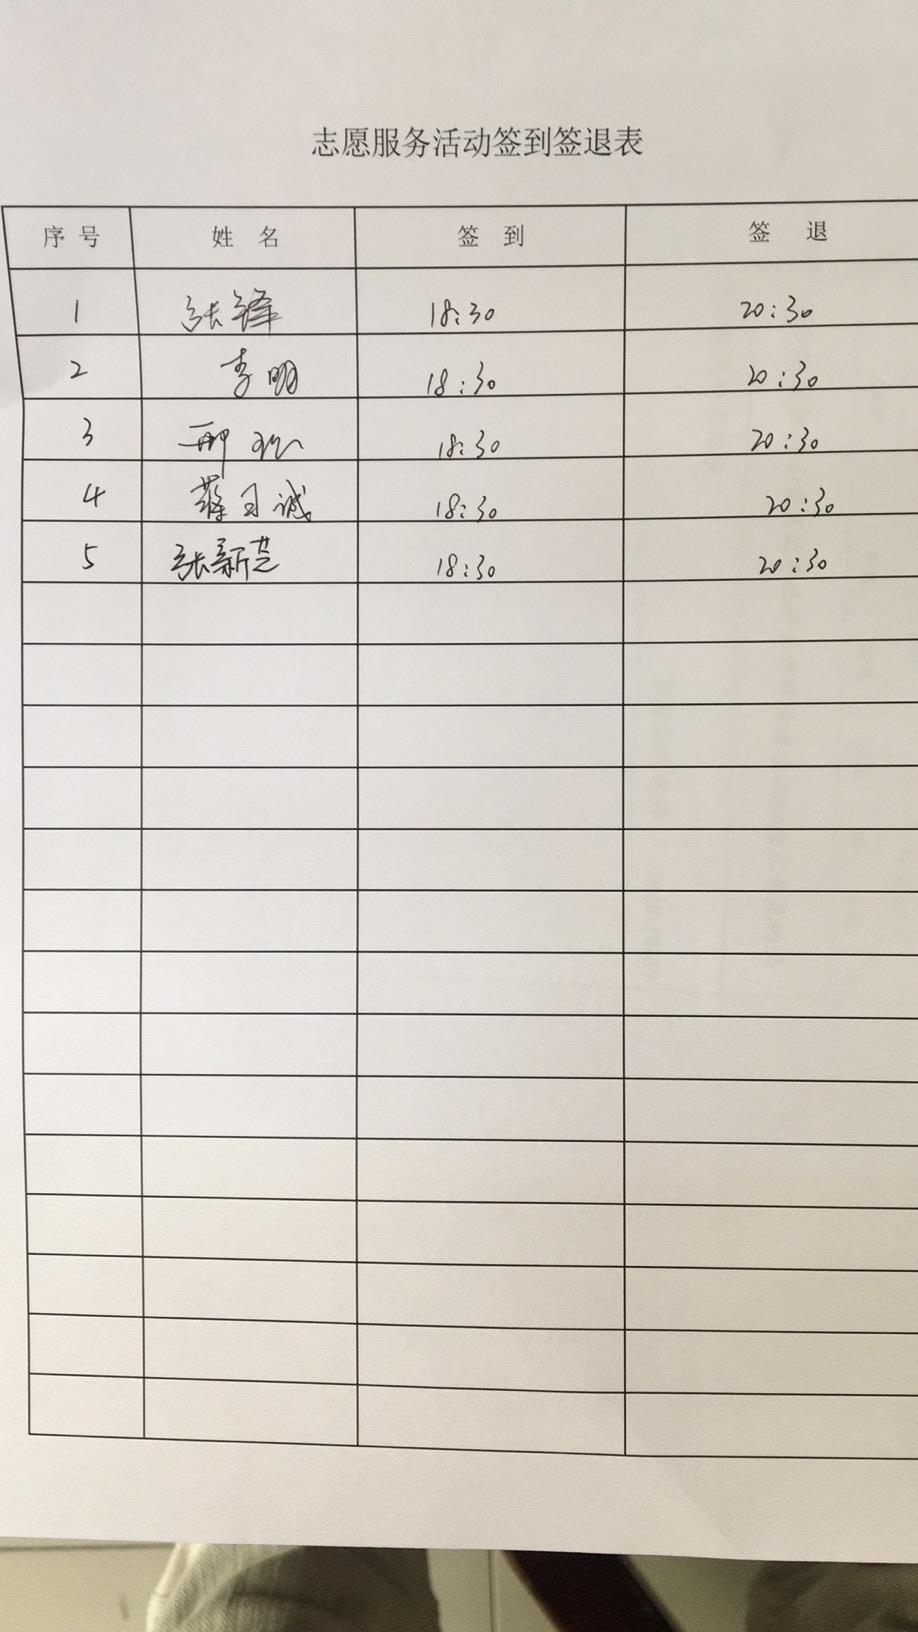 志愿服务活动签到签退表
序号 姓名 签到 签退
1 张锋 18:30 20:30
2 李明 18:30 20:30
3 邢 18:30 20:30
4 蒋日诚 18:30 20:30
5 张新芝 18:30 20:30